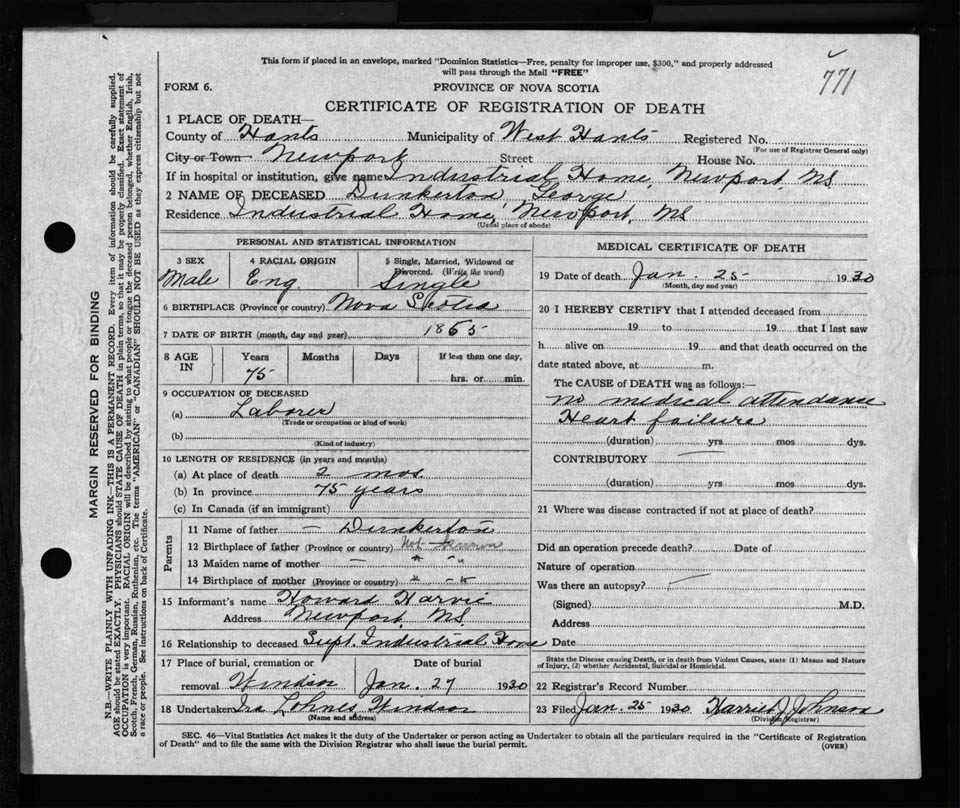 This form if placed in an envelope, marked "Dominion Statistics—Free, penalty for improper use, $300," and properly addressed
will pass through the Mail "FREE"
771
FORM 6.
PROVINCE OF NOVA SCOTIA
CERTIFICATE OF REGISTRATION OF DEATH
1 PLACE OF DEATH—
County of Hants Municipality of West Hants Registered No.
(For use of Registrar General only)
City or Town Newport Street House No.
If in hospital or institution, give name Industrial Home, Newport, NS
2 NAME OF DECEASED Dunkerton, George
Residence Industrial Home, Newport, NS
(Usual place of abode)
PERSONAL AND STATISTICAL INFORMATION
3 SEX 4 RACIAL ORIGIN 5 Single, Married, Widowed or
Divorced. (Write the word)
Male Eng. Single
6 BIRTHPLACE (Province or country) Nova Scotia
7 DATE OF BIRTH (month, day and year) 1865
8 AGE IN Years Months Days If less than one day,
75 hrs. or min.
9 OCCUPATION OF DECEASED
(a) Laborer
(Trade or occupation or kind of work)
(b)
(Kind of industry)
10 LENGTH OF RESIDENCE (in years and months)
(a) At place of death 2 mos.
(b) In province 75 years
(c) In Canada (if an immigrant)
Parents
11 Name of father — Dunkerton
12 Birthplace of father (Province or country) Not known
13 Maiden name of mother — " "
14 Birthplace of mother (Province or country) " - "
15 Informant's name Howard Harvie
Address Newport NS.
16 Relationship to deceased Supt. Industrial Home
17 Place of burial, cremation or Date of burial
removal Windsor Jan. 27 1930
18 Undertaker Ira Lohnes, Windsor
(Name and address)
MEDICAL CERTIFICATE OF DEATH
19 Date of death Jan. 25 1930
(Month, day and year)
20 I HEREBY CERTIFY that I attended deceased from
19 to 19 that I last saw
h alive on 19 and that death occurred on the
date stated above, at m.
The CAUSE of DEATH was as follows:—
no medical attendance
Heart failure
(duration) yrs. mos dys.
CONTRIBUTORY
(duration) yrs. mos dys.
21 Where was disease contracted if not at place of death?
Did an operation precede death? Date of
Nature of operation
Was there an autopsy?
(Signed) M.D.
Address
Date
State the Disease causing Death, or in death from Violent Causes, state (1) Means and Nature
of Injury, (2) whether Accidental, Suicidal or Homicidal.
22 Registrar's Record Number
23 Filed Jan. 25 1930 Harriet J Johnson
(Division Registrar)
SEC. 46—Vital Statistics Act makes it the duty of the Undertaker or person acting as Undertaker to obtain all the particulars required in the "Certificate of Registration
of Death" and to file the same with the Division Registrar who shall issue the burial permit.
(OVER)
MARGIN RESERVED FOR BINDING
N.B.—WRITE PLAINLY WITH UNFADING INK—THIS IS A PERMANENT RECORD. Every item of information should be carefully supplied.
AGE should be stated EXACTLY. PHYSICIANS should STATE CAUSE OF DEATH in plain terms, so that it may be properly classified. Exact statement of
OCCUPATION is very important. RACIAL ORIGIN will be described by stating to what people or tongue the deceased person belonged, whether English, Irish,
Scotch, French, German, Russian, Ruthenian, etc. The terms "AMERICAN" or "CANADIAN" SHOULD NOT BE USED as they express citizenship but not
a race or people. See instructions on back of Certificate.